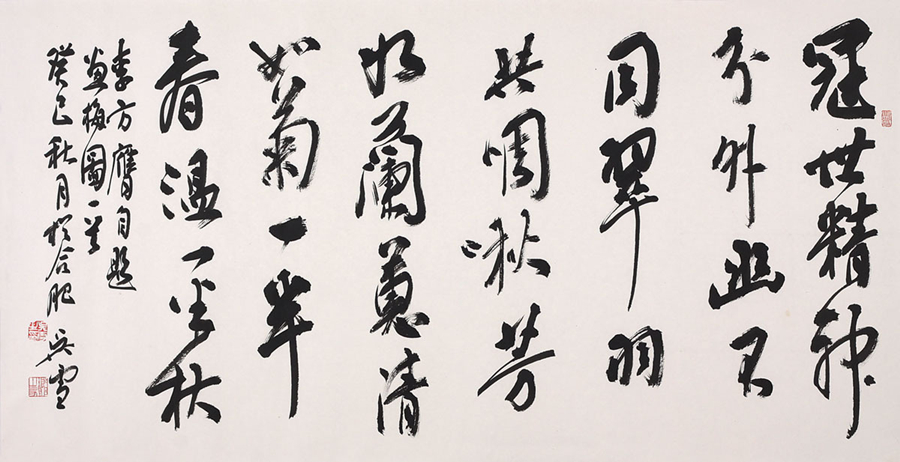 冠世精神
分外幽不
同翠羽
共啁啾芳
蘭蕙清
如菊一半
春温一半秋
李方膺自题
画梅圖一首
癸巳秋月於合肥
吴雪